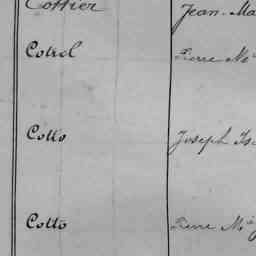 Cottier Jean-Ma
Cotrel Pierre M
Cotto Joseph Is
Cotto Pierre M